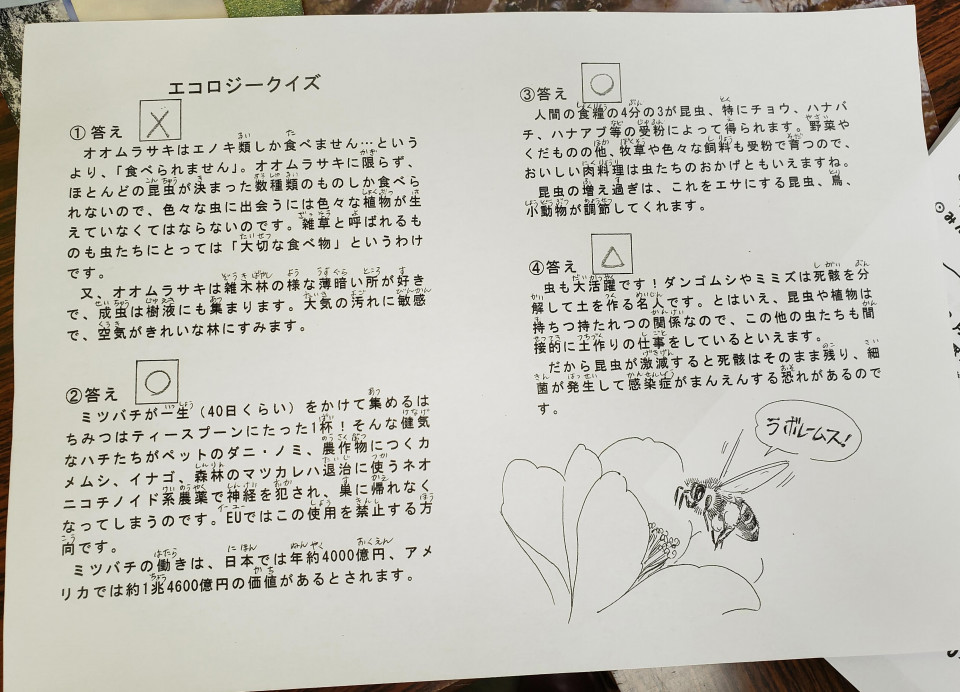 エコロジークイズ
①答え ×
オオムラサキはエノキ類しか食べません…という
より、「食べられません」。オオムラサキに限らず、
ほとんどの昆虫が決まった数種類のものしか食べら
れないので、色々な虫に出会うには色々な植物が生
えていなくてはならないのです。雑草と呼ばれるも
のも虫たちにとっては「大切な食べ物」というわけ
です。
又、オオムラサキは雑木林の様な薄暗い所が好き
で、成虫は樹液にも集まります。大気の汚れに敏感
で、空気がきれいな林にすみます。
②答え ○
ミツバチが一生（40日くらい）をかけて集めるは
ちみつはティースプーンにたった1杯！そんな健気
なハチたちがペットのダニ・ノミ、農作物につくカ
メムシ、イナゴ、森林のマツカレハ退治に使うネオ
ニコチノイド系農薬で神経を犯され、巣に帰れなく
なってしまうのです。EUではこの使用を禁止する方
向です。
ミツバチの働きは、日本では年約4000億円、アメ
リカでは約1兆4600億円の価値があるとされます。
③答え ○
人間の食糧の4分の3が昆虫、特にチョウ、ハナバ
チ、ハナアブ等の受粉によって得られます。野菜や
くだものの他、牧草や色々な飼料も受粉で育つので、
おいしい肉料理は虫たちのおかげともいえますね。
昆虫の増え過ぎは、これをエサにする昆虫、鳥、
小動物が調節してくれます。
④答え △
虫も大活躍です！ダンゴムシやミミズは死骸を分
解して土を作る名人です。とはいえ、昆虫や植物は
持ちつ持たれつの関係なので、この他の虫たちも間
接的に土作りの仕事をしているといえます。
だから昆虫が激減すると死骸はそのまま残り、細
菌が発生して感染症がまんえんする恐れがあるので
す。
ラボレームス！